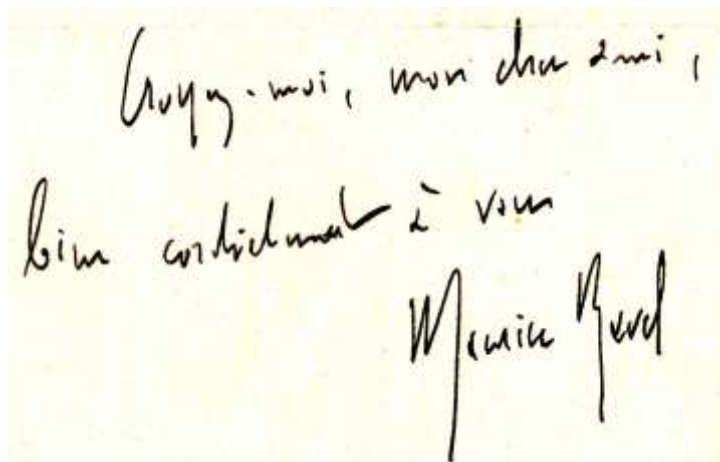 Croyez-moi, mon cher ami,
bien cordialement à vous
Maurice Ravel